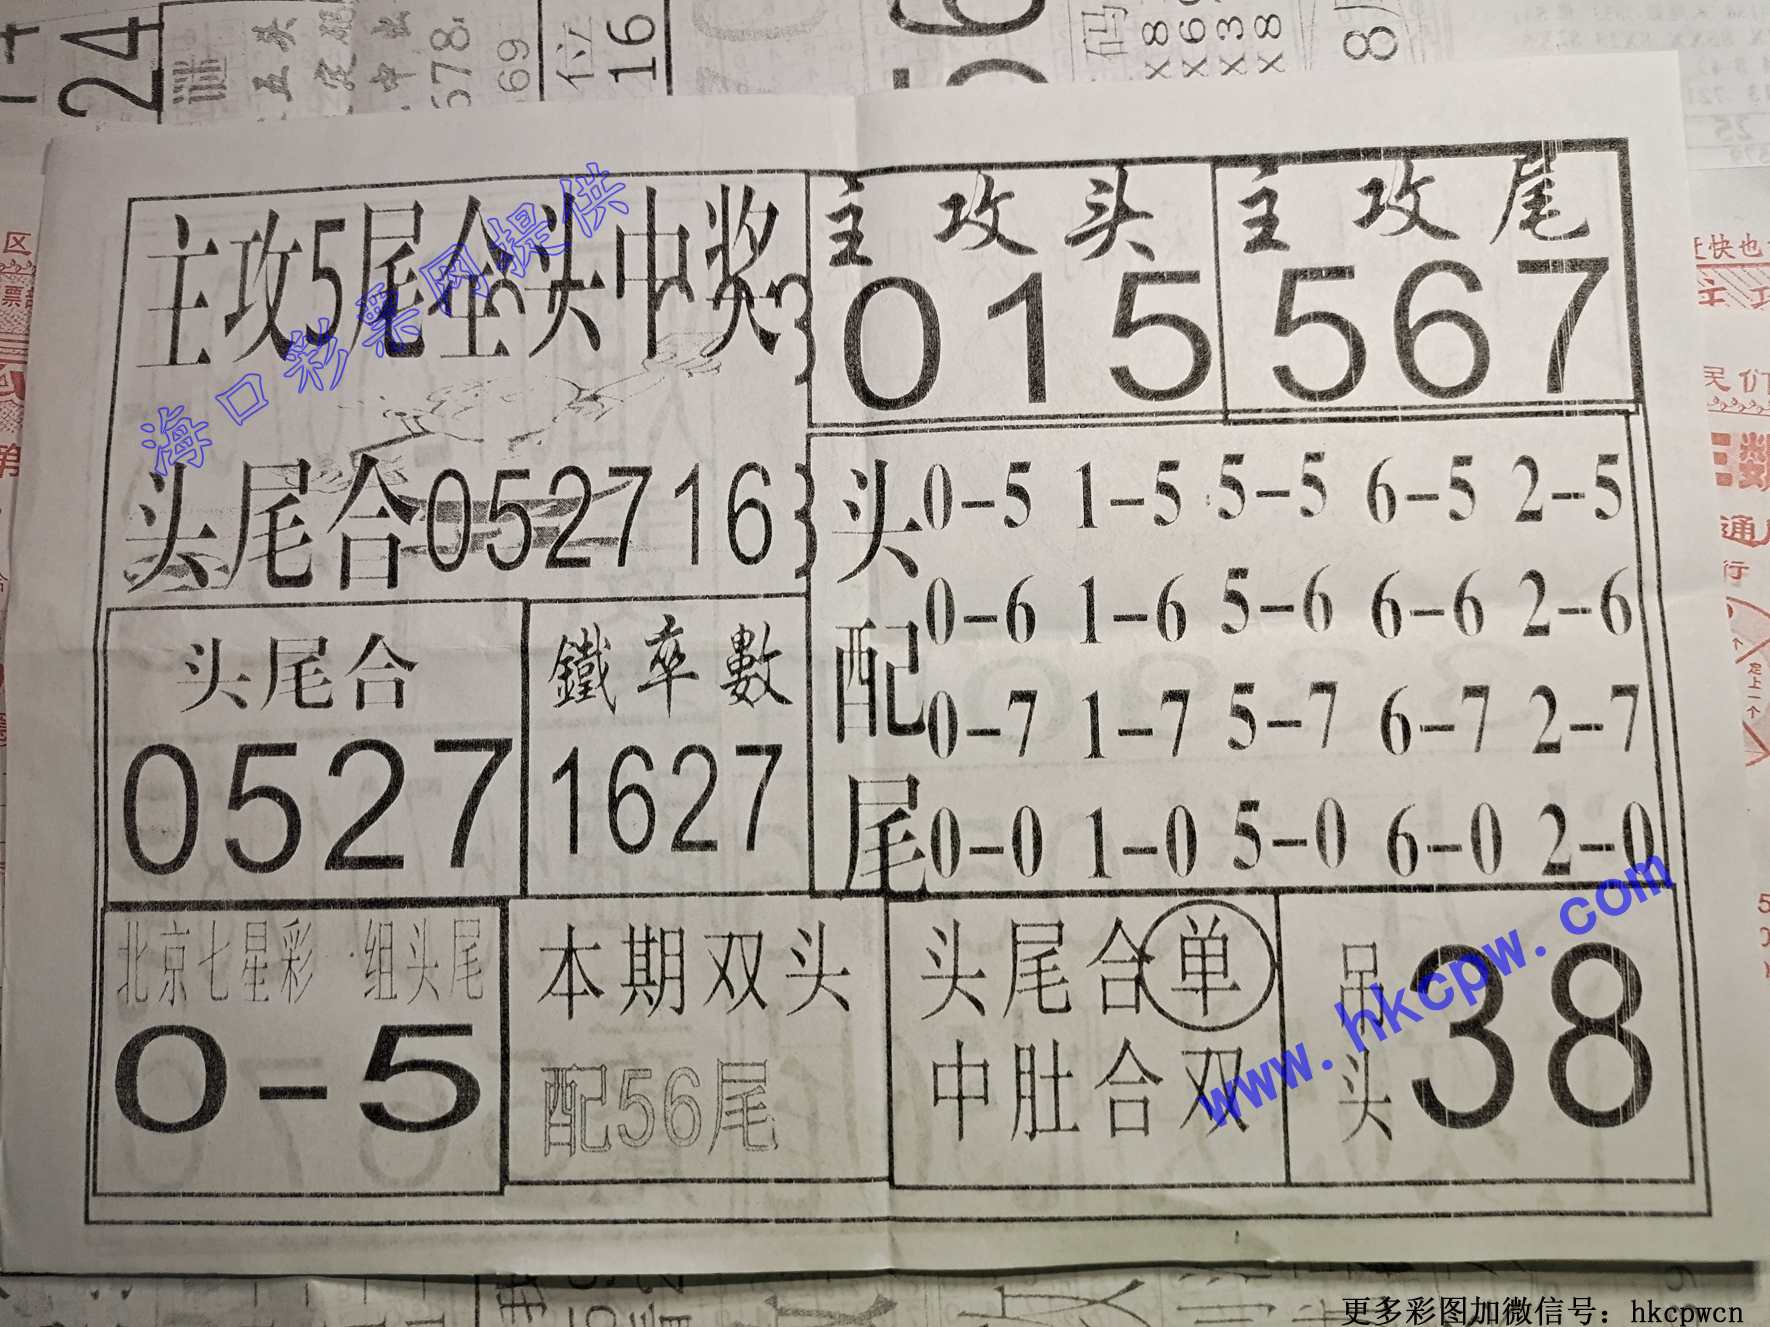 主攻5尾全头中奖
海口彩票网提供
头尾合052716
主攻头
015
主攻尾
567
头配尾
0-5 1-5 5-5 6-5 2-5
0-6 1-6 5-6 6-6 2-6
0-7 1-7 5-7 6-7 2-7
0-0 1-0 5-0 6-0 2-0
头尾合
0527
鐵率數
1627
北京七星彩 一组头尾
0-5
本期双头
配56尾
头尾合单
中肚合双
吊头
38
www.hkcpw.com
24
578
69
位
16
码
x8
x6
x3
x8
8
区
票
赶快也
民们
数
通
行
定上一个
25
更多彩图加微信号：hkcpwcn